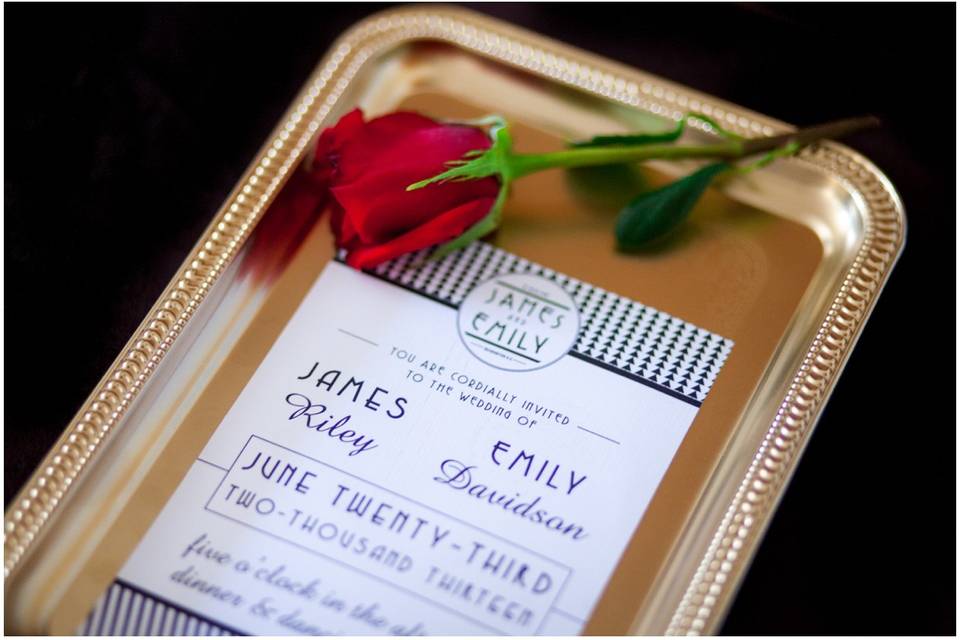 JAMES
AND
EMILY
YOU ARE CORDIALLY INVITED
TO THE WEDDING OF
JAMES
Riley
EMILY
Davidson
JUNE TWENTY-THIRD
TWO-THOUSAND THIRTEEN
five o'clock in the
dinner &